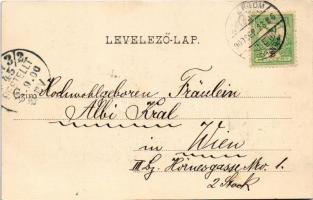 LEVELEZŐ-LAP.
3/2
BESTELLT
Hochwohlgeboren Fräulein
Albi Kral
in Wien
III Bz. Hörnesgasse No. 1.
2 Stock